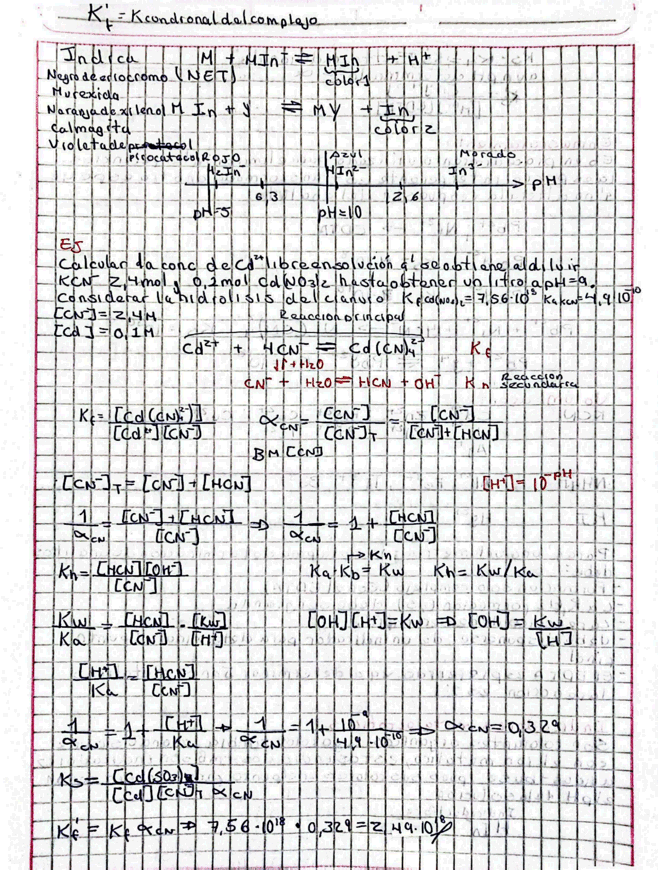 K'f = Kcondronal del complejo
Indica M + MIn⁻ ⇌ MIn + H⁺
Negro de eriocromo (NET) color 1
Murexida
Naranja de xilenol M In + y ⇌ MY + In
Calmagita color 2
Violeta de
pirocatacol ROJO Azul Morado
H₂In⁻ HIn²⁻ In³⁻
pH
6,3 12,6
pH=5 pH=10
EJ
Calcular la conc de Cd²⁺ libre en solución q' se obtiene al diluir
KCN 2,4mol y 0,2mol Cd(NO3)2 hasta obtener un litro a pH=9.
Considerar la hidrolisis del cianuro. Kf Cd(NO3)2 = 7,56·10 Ka KCN = 4,9·10⁻¹⁰
[CN⁻] = 2,4M Reaccion principal
[Cd] = 0,1M
Cd²⁺ + 4CN⁻ ⇌ Cd(CN)₄²⁻ Kf
↓↑ + H2O
CN⁻ + H2O ⇌ HCN + OH⁻ Kh Reaccion secundaria
Kf = [Cd(CN)²⁻]/[Cd²⁺][CN⁻] αCN = [CN⁻]/[CN⁻]T = [CN⁻]/[CN⁻]+[HCN]
BM [CN]
[CN⁻]T = [CN⁻] + [HCN] [H⁺] = 10⁻ᵖᴴ
1/αCN = [CN⁻]+[HCN]/[CN⁻] ⇒ 1/αCN = 1 + [HCN]/[CN⁻]
→ Kh
Kh = [HCN][OH⁻]/[CN⁻] Ka·Kb = Kw Kh = Kw/Ka
Kw/Ka = [HCN]/[CN⁻] · [Kw]/[H⁺] [OH][H⁺] = Kw ⇒ [OH] = Kw/[H]
[H⁺]/Ka = [HCN]/[CN⁻]
1/αCN = 1 + [H⁺]/Ka → 1/αCN = 1 + 10⁻⁹/4,9·10⁻¹⁰ ⇒ αCN = 0,329
Ks = [Cd(SO3)]/[Cd][CN]T αCN
K'f = Kf αCN ⇒ 7,56·10¹⁸ · 0,329 = 2,49·10¹⁸